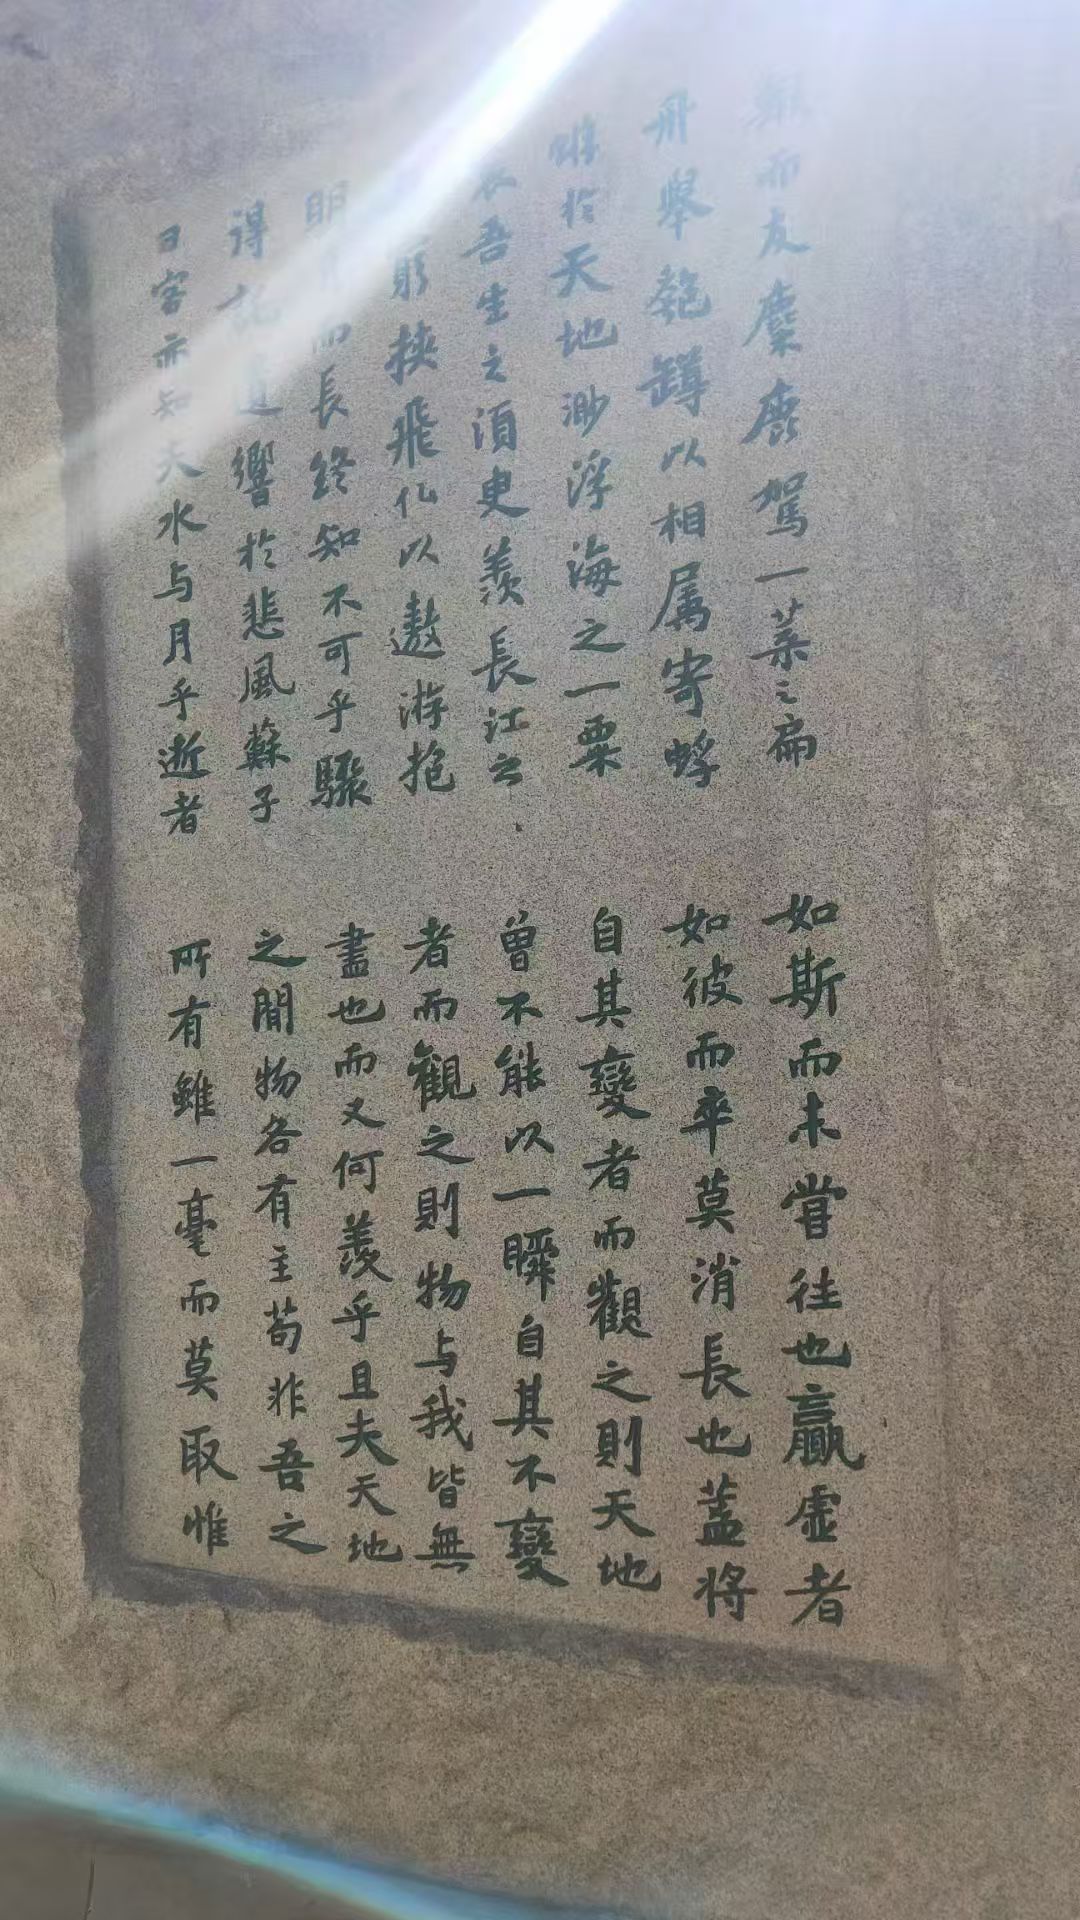 而友麋鹿駕一葉之扁
舟舉匏罇以相属寄蜉
蝣於天地渺浮海之一粟
哀吾生之須臾羨長江之
窮挾飛仙以遨游抱
明月而長終知不可乎驟
得託遺響於悲風蘇子
曰客亦知夫水与月乎逝者
如斯而未嘗往也贏虚者
如彼而卒莫消長也蓋将
自其變者而觀之則天地
曾不能以一瞬自其不變
者而觀之則物与我皆無
盡也而又何羨乎且夫天地
之間物各有主苟非吾之
所有雖一毫而莫取惟